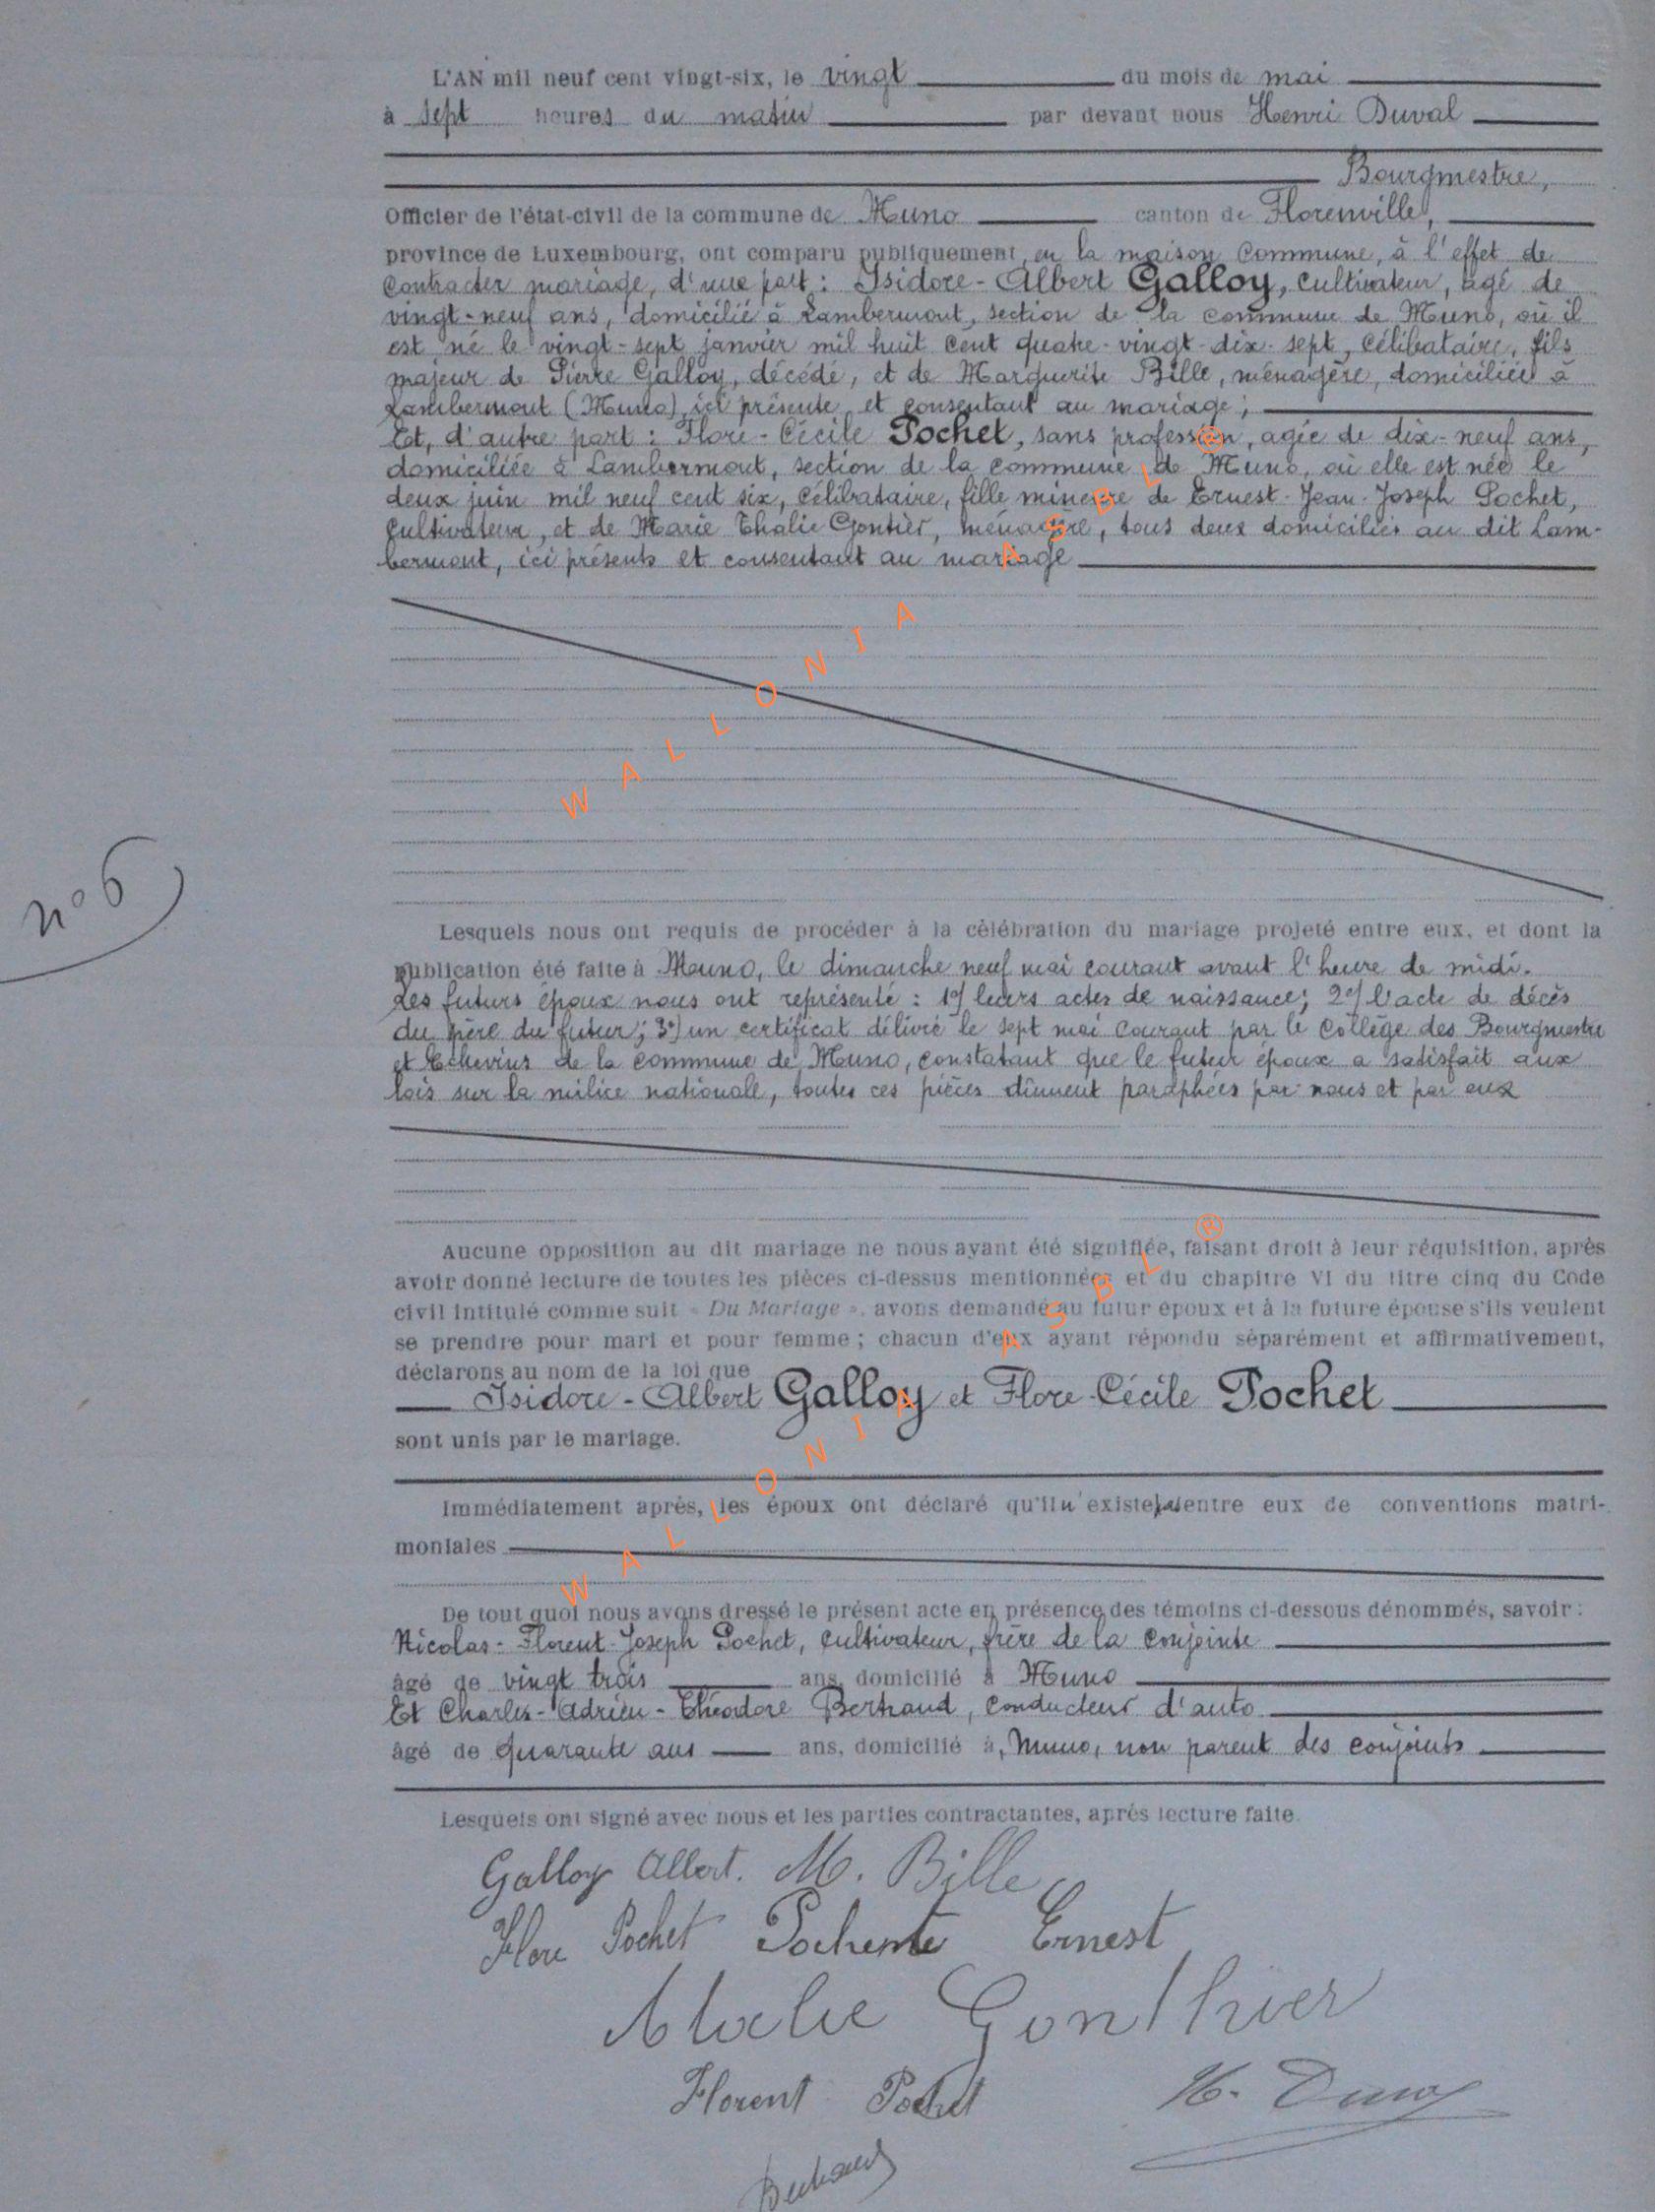 L'AN mil neuf cent vingt-six, le vingt du mois de mai
à sept heures du matin par devant nous Henri Duval
Bourgmestre,
Officier de l'état-civil de la commune de Muno canton de Florenville,
province de Luxembourg, ont comparu publiquement en la maison Commune, à l'effet de
contracter mariage, d'une part : Isidore-Albert Galloy, cultivateur, âgé de
vingt-neuf ans, domicilié à Lambermont, section de la commune de Muno, où il
est né le vingt-sept janvier mil huit cent quatre-vingt-dix-sept, célibataire, fils
majeur de Pierre Galloy, décédé, et de Marguerite Bille, ménagère, domiciliée à
Lambermont (Muno), ici présente et consentant au mariage ;
Et, d'autre part : Flore-Cécile Pochet, sans profession, agée de dix-neuf ans,
domiciliée à Lambermont, section de la commune de Muno, où elle est née le
deux juin mil neuf cent six, célibataire, fille mineure de Ernest-Jean-Joseph Pochet,
cultivateur, et de Marie Thalie Gontier, ménagère, tous deux domiciliés au dit Lam-
bermont, ici présents et consentant au mariage
WALLONIA ASBL ®
n° 6
Lesquels nous ont requis de procéder à la célébration du mariage projeté entre eux, et dont la
publication été faite à Muno, le dimanche neuf mai courant avant l'heure de midi.
Les futurs époux nous ont représenté : 1°/ leurs actes de naissance ; 2°/ l'acte de décès
du père du futur ; 3°) un certificat délivré le sept mai courant par le Collège des Bourgmestre
et Echevins de la commune de Muno, constatant que le futur époux a satisfait aux
lois sur la milice nationale, toutes ces pièces dûment paraphées par nous et par eux
Aucune opposition au dit mariage ne nous ayant été signifiée, faisant droit à leur réquisition, après
avoir donné lecture de toutes les pièces ci-dessus mentionnées et du chapitre VI du titre cinq du Code
civil intitulé comme suit « Du Mariage », avons demandé au futur époux et à la future épouse s'ils veulent
se prendre pour mari et pour femme ; chacun d'eux ayant répondu séparément et affirmativement,
déclarons au nom de la loi que
Isidore-Albert Galloy et Flore-Cécile Pochet
sont unis par le mariage.
WALLONIA ASBL ®
Immédiatement après, les époux ont déclaré qu'il n'existe pas entre eux de conventions matri-
moniales
De tout quoi nous avons dressé le présent acte en présence des témoins ci-dessous dénommés, savoir :
Nicolas-Florent-Joseph Pochet, cultivateur, frère de la conjointe
âgé de vingt trois ans, domicilié à Muno
Et Charles-Adrien-Théodore Bertrand, conducteur d'auto
âgé de quarante ans ans, domicilié à, Muno, non parent des conjoints
Lesquels ont signé avec nous et les parties contractantes, après lecture faite.
Galloy Albert. M. Bille
Flore Pochet Ernest
Gonthier
Florent Pochet H. Duval
Bertrand